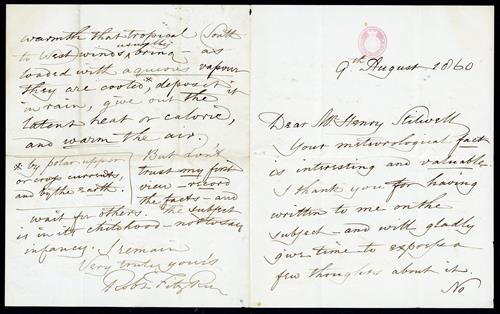 9th August 1860
Dear Mr Henry Stilwell
Your meteorological fact
is interesting and valuable
I thank you for having
written to me on the
subject - and will gladly
give time to express a
few thoughts about it.
No
warmth that tropical South
to West winds usually bring - as
loaded with aqueous vapour
they are cooled*, deposit it
in rain, give out the
latent heat or caloric,
and warm the air.
* by polar upper
or cross currents,
and by the Earth.
But don't
trust my first
view - record
the facts - and
wait for others. The subject
is in its childhood - not to say
infancy. I remain
Very truly yours
Robt FitzRoy